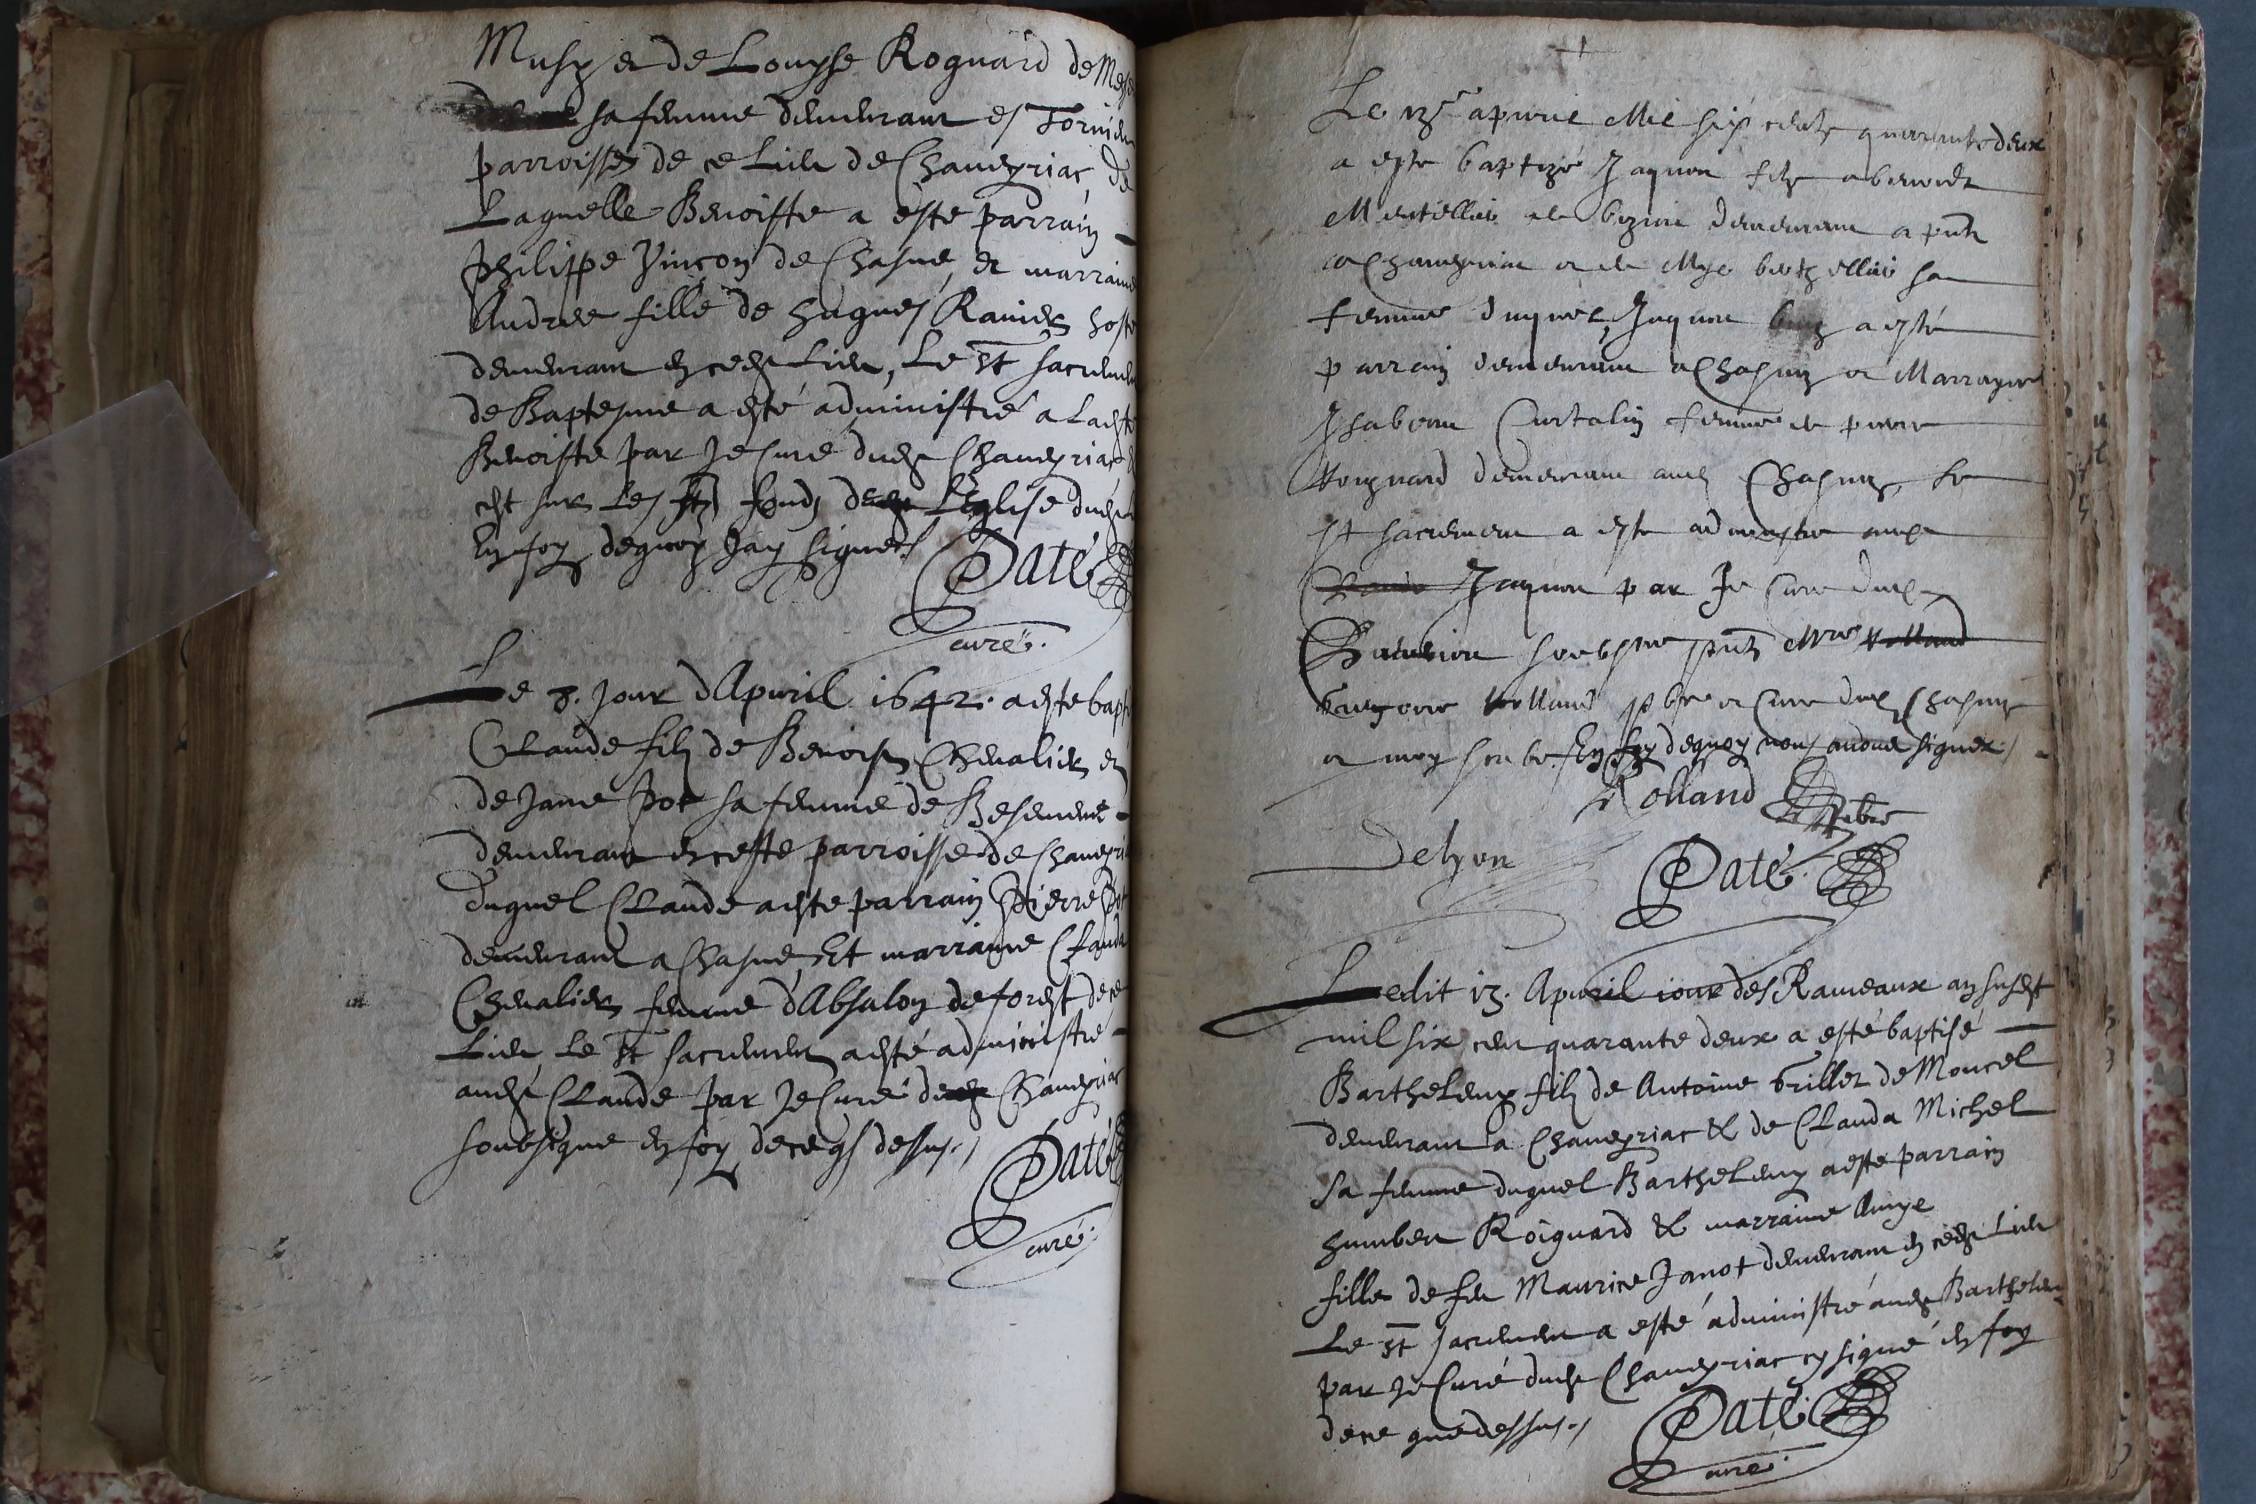 Musy et de Louyse Roguard de
sa femme demeurant es Tornier
parroisse de ce Lieu de Chaveyriac, de
Laquelle Benoiste a este parrain
Philippe Vincon de Chasne, et marraine
Andree fille de Hugues Ravier hoste
demeurant en cedt Lieu, Le St sacrement
de Baptesme a esté administré a Ladte
Benoiste par Je Curé dudt Chaveyriac
est sur Les fonds Leglise dudt
En foy dequoy Jay signé
Daté
curé.
Le 8. Jour d'Apvril 1642. a este bapt
Claude filz de Benoist Chevalier et
de Jane Pot sa femme de Besement
demeurant en ceste parroisse de Chaveyri
duquel Claude a este parrain Pierre Pot
demeurant a Chasne, Et marraine Clauda
Chevalier femme d'Absalon deforest de ce
Lieu Le St sacrement a esté administré
audt Claude par Je Curé Chaveyriac
soubsigne en foy de ce q dessus
Daté
curé.
Le 13e apvril Mil six centz quarante deux
a este baptizé Jaques filz a benoist
demeurant a pnt
a Chaveyriac et de
femme duquel Jaques a esté
parrain demeurant a Chasne et Marrayne
Ysabeau Curtalin femme de pierre
Roignard demeurant aud Chasne, Le
St sacrement a este administre aud
Jaques par Je Curé dud
Chaveyriac pnt Mre Rolland
Rolland pbre et Curé dud Chasne
et moy En foy dequoy nous avons signez
Rolland Pbre
Delyon
Daté
Ledit 13. Apvril iour des Rameaux an susdt
mil six cent quarante deux a esté baptisé
Barthelemy filz de Antoine Grillet de Moncel
demeurant a Chaveyriac & de Clauda Michel
sa femme duquel Barthelemy a este parrain
Humbert Roignard & marraine Amye
fille de feu Maurice Janot demeurant en cedt Lieu
Le St sacrement a esté administré audt Barthelemy
par Je Curé dudt Chaveyriac cy signé en foy
de ce que dessus
Daté
curé.